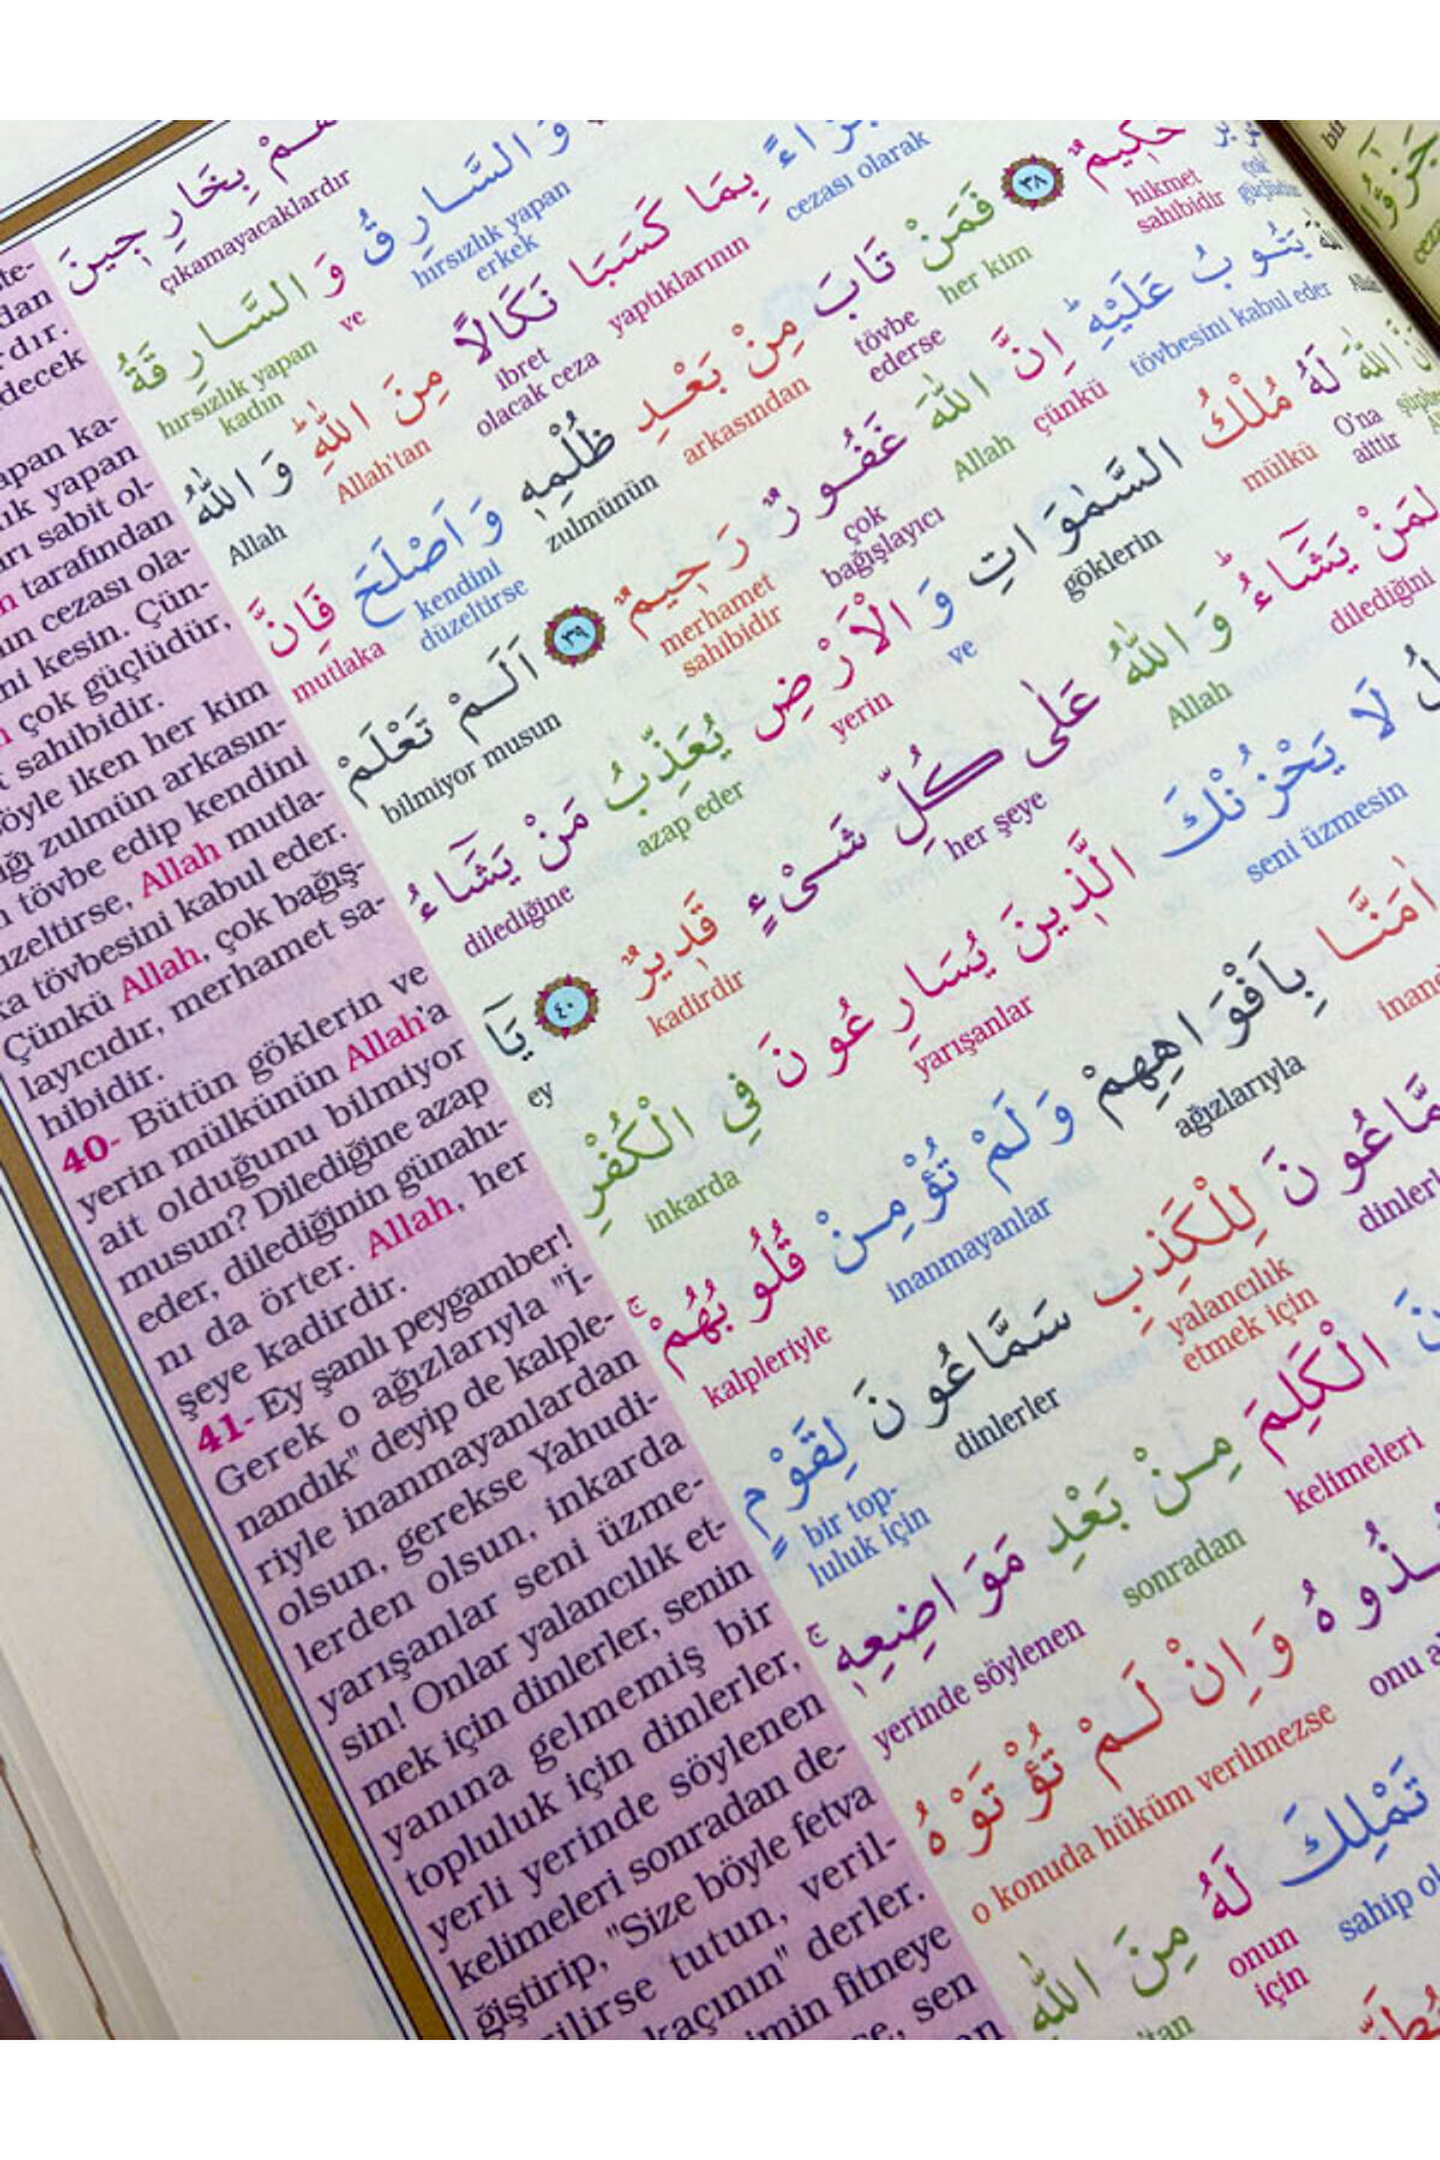 dan
dır.
decek
apan ka-
ık yapan
arı sabit ol-
tarafından
nın cezası ola-
ni kesin. Çün-
çok güçlüdür,
sahibidir.
öyle iken her kim
ğı zulmün arkasın-
tövbe edip kendini
üzeltirse, Allah mutla-
ka tövbesini kabul eder.
Çünkü Allah, çok bağış-
layıcıdır, merhamet sa-
hibidir.
40- Bütün göklerin ve
yerin mülkünün Allah'a
ait olduğunu bilmiyor
musun? Dilediğine azap
eder, dilediğinin günahı-
nı da örter. Allah, her
şeye kadirdir.
41- Ey şanlı peygamber!
Gerek o ağızlarıyla "İ-
nandık" deyip de kalple-
riyle inanmayanlardan
olsun, gerekse Yahudi-
lerden olsun, inkarda
yarışanlar seni üzme-
sin! Onlar yalancılık et-
mek için dinlerler, senin
yanına gelmemiş bir
topluluk için dinlerler,
yerli yerinde söylenen
kelimeleri sonradan de-
ğiştirip, "Size böyle fetva
ilirse tutun, veril-
kaçının" derler.
imin fitneye
se, sen
بِخَارِجِينَ
çıkamayacaklardır
وَالسَّارِقُ
hırsızlık yapan
erkek
وَ السَّارِقَةُ
ve hırsızlık yapan
kadın
جَزَاءً بِمَا كَسَبَا نَكَالًا مِنَ اللّٰهِ وَاللّٰهُ
cezası olarak yaptıklarının ibret
olacak ceza Allah'tan Allah
حَكِيمٌ ﴿٣٨﴾ فَمَنْ تَابَ مِنْ بَعْدِ ظُلْمِهِ وَاَصْلَحَ فَاِنَّ
hikmet
sahibidir her kim tövbe
ederse arkasından zulmünün kendini
düzeltirse mutlaka
اللّٰهَ يَتُوبُ عَلَيْهِ اِنَّ اللّٰهَ غَفُورٌ رَحِيمٌ ﴿٣٩﴾ اَلَمْ تَعْلَمْ
tövbesini kabul eder çünkü Allah çok
bağışlayıcı merhamet
sahibidir bilmiyor musun
اللّٰهَ لَهُ مُلْكُ السَّمٰوَاتِ وَالْاَرْضِ يُعَذِّبُ مَنْ يَشَاءُ
O'na
aittir mülkü göklerin ve yerin azap eder dilediğine
لِمَنْ يَشَاءُ وَاللّٰهُ عَلٰى كُلِّ شَىْءٍ قَدِيرٌ ﴿٤٠﴾ يَا
dilediğini Allah her şeye kadirdir ey
لَا يَحْزُنْكَ الَّذِينَ يُسَارِعُونَ فِي الْكُفْرِ
seni üzmesin yarışanlar inkarda
اٰمَنَّا بِاَفْوَاهِهِمْ وَلَمْ تُؤْمِنْ قُلُوبُهُمْ
ağızlarıyla inanmayanlar kalpleriyle
لِلْكَذِبِ سَمَّاعُونَ لِقَوْمٍ
yalancılık
etmek için dinlerler bir top-
luluk için
الْكَلِمَ مِنْ بَعْدِ مَوَاضِعِهِ
kelimeleri sonradan yerinde söylenen
وَاِنْ لَمْ تُؤْتَوْهُ
onu o konuda hüküm verilmezse
تَمْلِكَ لَهُ مِنَ اللّٰهِ
sahip onun
için